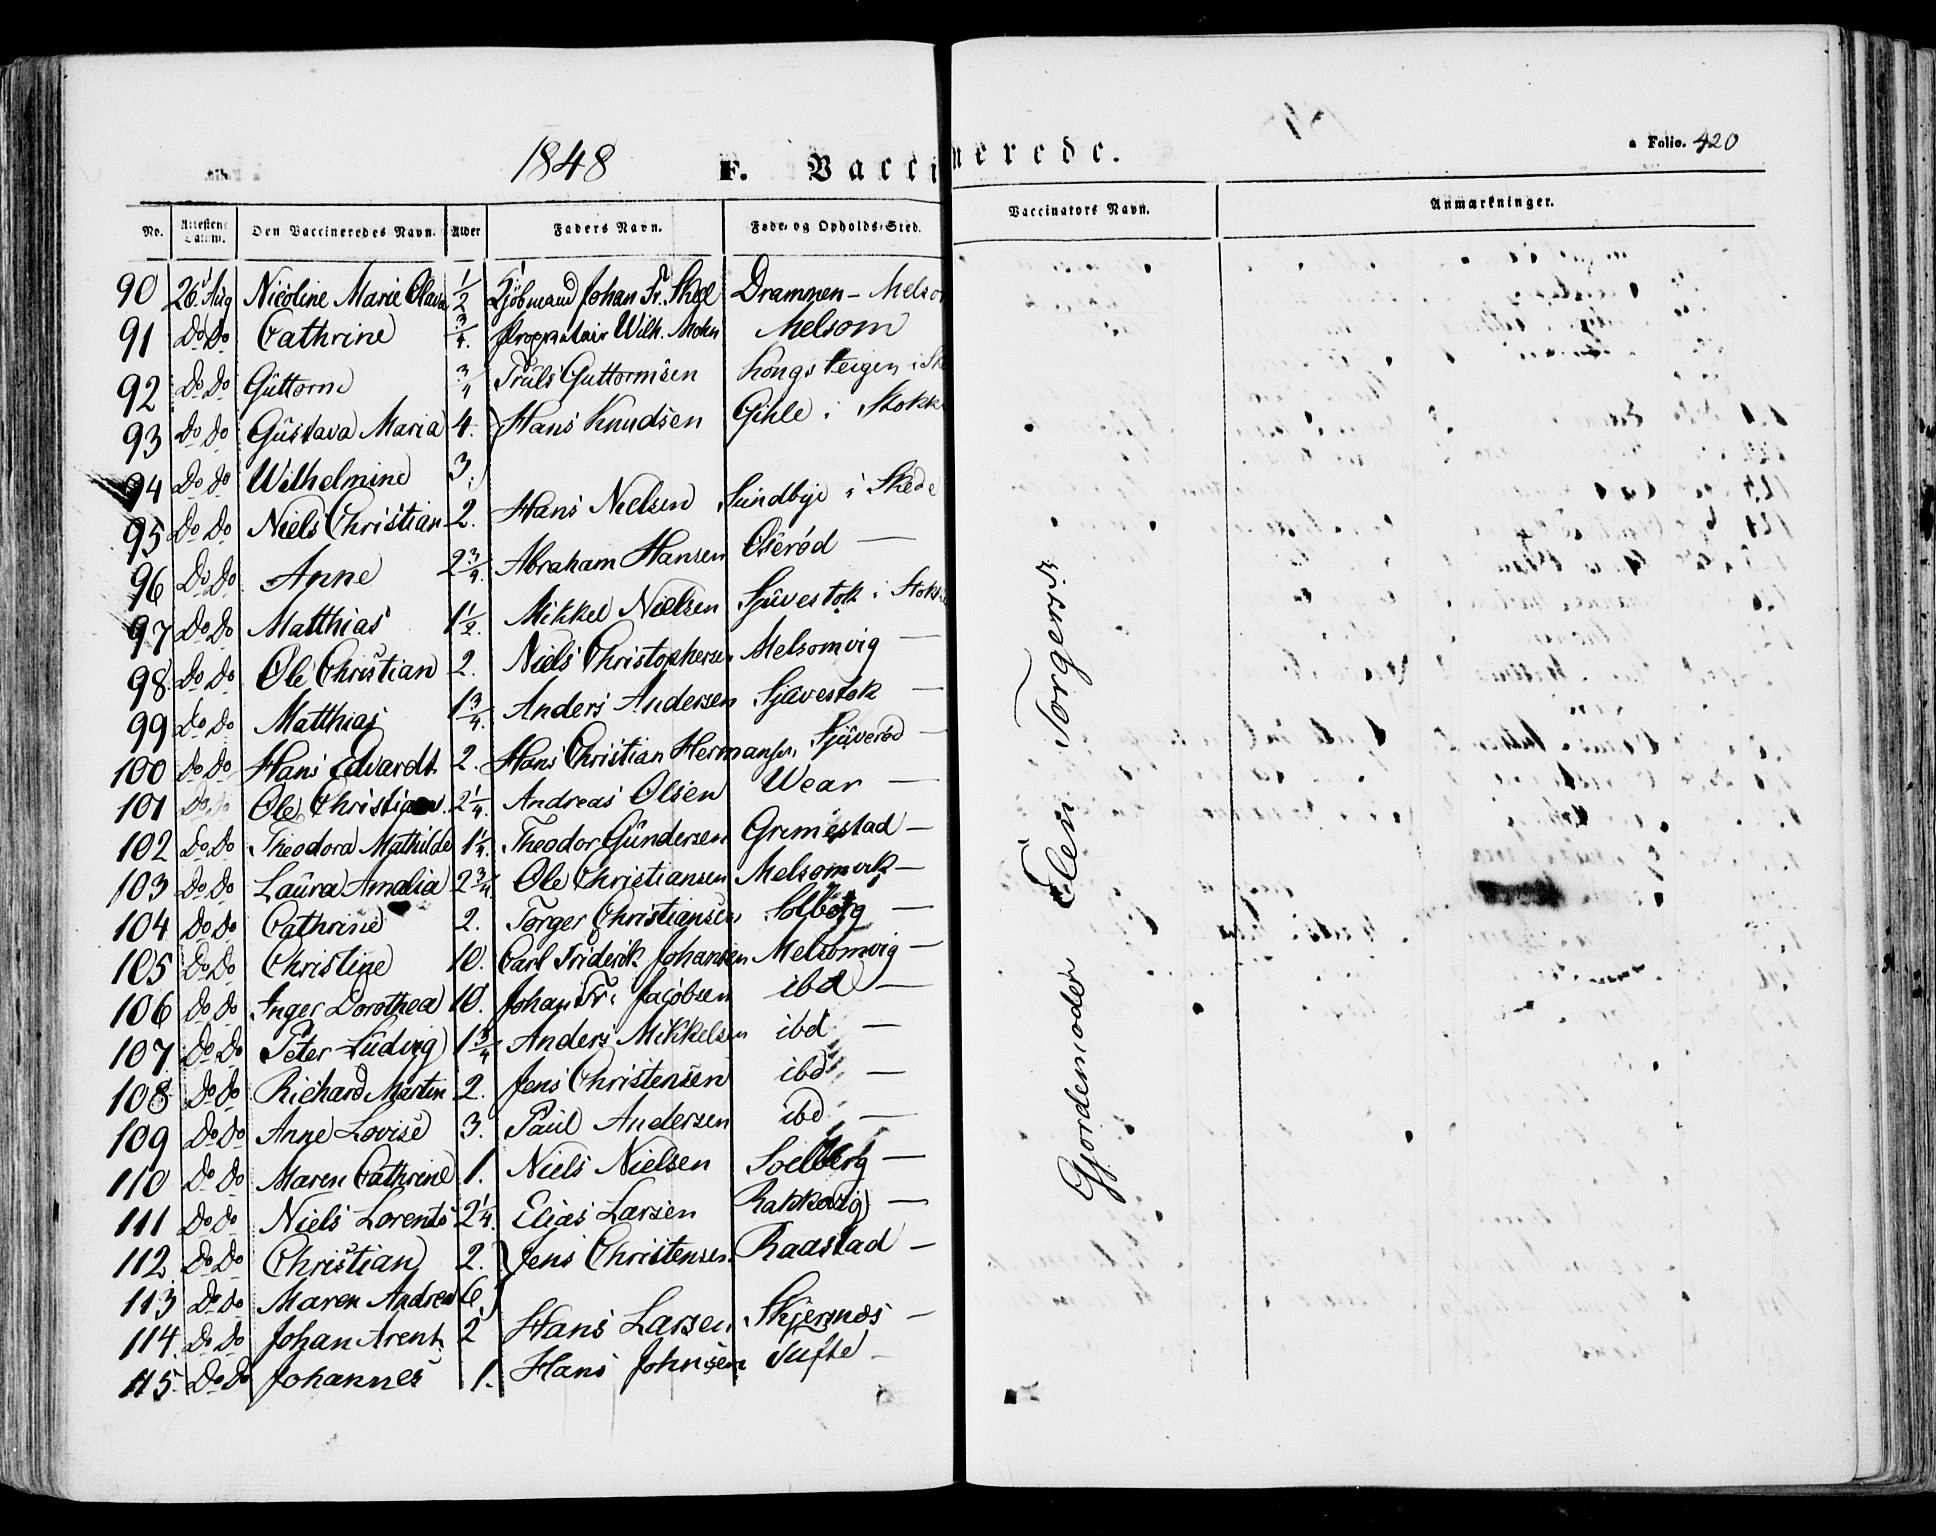 1848 F. Vaccinerede. a Folio. 420
No. Attestens Datum. Den Vaccineredes Navn. Alder Faders Navn. Føde- og Opholds-Sted. Vaccinators Navn. Anmærkninger.
90 26 Aug Nicoline Marie Olava 1/2 Kjöbmand Johan Fr. Melsom
91 Do Do Cathrine 3/4. Wilh. Melsom
92 Do Do Guttorm 3/4 Truls Guttormsen Longsteigen i
93 Do Do Gustava Maria 4. Hans Knudsen Gihle i Stokke
94 Do Do Wilhelmine 3.
95 Do Do Niels Christian 2. Hans Nielsen Sundbye i Skede
96 Do Do Anne 2 3/4. Abraham Hansen Oseröd —
97 Do Do Matthias 1 1/2. Mikkel Nielsen i Stokke
98 Do Do Ole Christian 2. Niels Christophersen Melsomvig —
99 Do Do Matthias 1 3/4. Anders Andersen —
100 Do Do Hans Edvardt 2. Hans Christian Hermansen —
101 Do Do Ole Christian 2 1/4. Andreas Olsen Wear —
102 Do Do Theodora Mathilde 1 1/4. Theodor Gundersen Grimestad —
103 Do Do Laura Amalia 2 3/4 Ole Christiansen Melsomvik —
104 Do Do Cathrine 2. Torger Christiansen Solberg —
105 Do Do Christine 10. Carl Friderik Johansen Melsomvig —
106 Do Do Inger Dorothea 10. Johan Fr. Jacobsen ibd —
107 Do Do Peter Ludvig 1 3/4 Anders Mikkelsen ibd —
108 Do Do Richard Martin 2. Jens Christensen ibd —
109 Do Do Anne Lovise 3. Paul Andersen ibd —
110 Do Do Maren Cathrine 1. Niels Nielsen Soelberg —
111 Do Do Niels Lorents 2 1/4. Elias Larsen Rakkevig —
112 Do Do Christian 2. Jens Christensen Raastad —
113 Do Do Maren Andrea 6.
114. Do Do Johan Arent 2 Hans Larsen Skjernæs —
115. Do Do Johannes 1. Hans Johnsen —
Gjordemoder Elen Torgersen